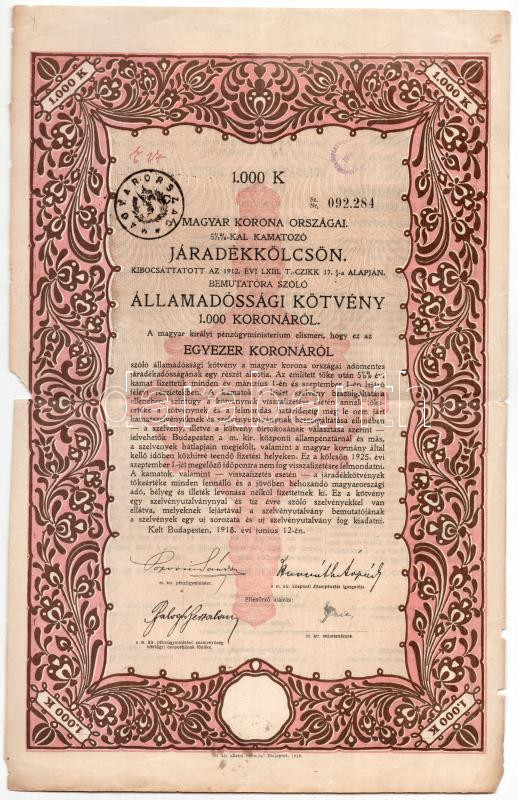 1.000 K
1.000 K
1.000 K
MAGYARORSZÁG
Sz.
Nr. 092.284
A MAGYAR KORONA ORSZÁGAI.
5½%-KAL KAMATOZÓ
JÁRADÉKKÖLCSÖN.
KIBOCSÁTTATOTT AZ 1912. ÉVI LXIII. T.-CZIKK 17. §-a ALAPJÁN.
BEMUTATÓRA SZÓLÓ
ÁLLAMADÓSSÁGI KÖTVÉNY
1.000 KORONÁRÓL.
A magyar királyi pénzügyministerium elismeri, hogy ez az
EGYEZER KORONÁRÓL
szóló államadóssági kötvény a magyar korona országai adómentes
járadékadósságának egy részét alkotja. Az említett tőke után 5½% évi
kamat fizettetik minden év márczius 1-én és szeptember 1-én lejáró
félévi részletekben. A kamatok a lejárt szelvény beszolgáltatása
ellenében, szintúgy a kötvénynek visszafizetése esetén annak tőke-
értéke a kötvénynek és a felmondási határidejéig még le nem járt
kamatszelvényeknek beszolgáltatása ellenében
— a szelvény, illetve a kötvény birtokosának választása szerint —
felvehetők Budapesten a m. kir. központi állampénztárnál és más,
a szelvények hátlapján megjelölt, valamint a magyar kormány által
kellő időben közhírré teendő fizetési helyeken. Ez a kölcsön 1925. évi
szeptember 1-jét megelőző időpontra nem fog visszafizetésre felmondatni.
A kamatok, valamint — visszafizetés esetén — a járadékkötvények
tőkeértéke minden fennálló és a jövőben behozandó magyarországi
adó, bélyeg és illeték levonása nélkül fizettetnek ki. Ez a kötvény
egy szelvényutalványnyal és tíz évre szóló szelvényekkel van
ellátva, melyeknek lejártával a szelvényutalvány bemutatójának
a szelvények egy uj sorozata és uj szelvényutalvány fog kiadatni.
Kelt Budapesten, 1918. évi junius 12-én.
m. kir. pénzügyminister.
a m. kir. központi állampénztár igazgatója.
Ellenőrző aláírás:
a m. kir. pénzügyministeri számvevőség
hitelügyi csoportjának főnöke.
m. kir. számtanácsos.
1.000 K
1.000 K
Budapest, 1918.
darabanth